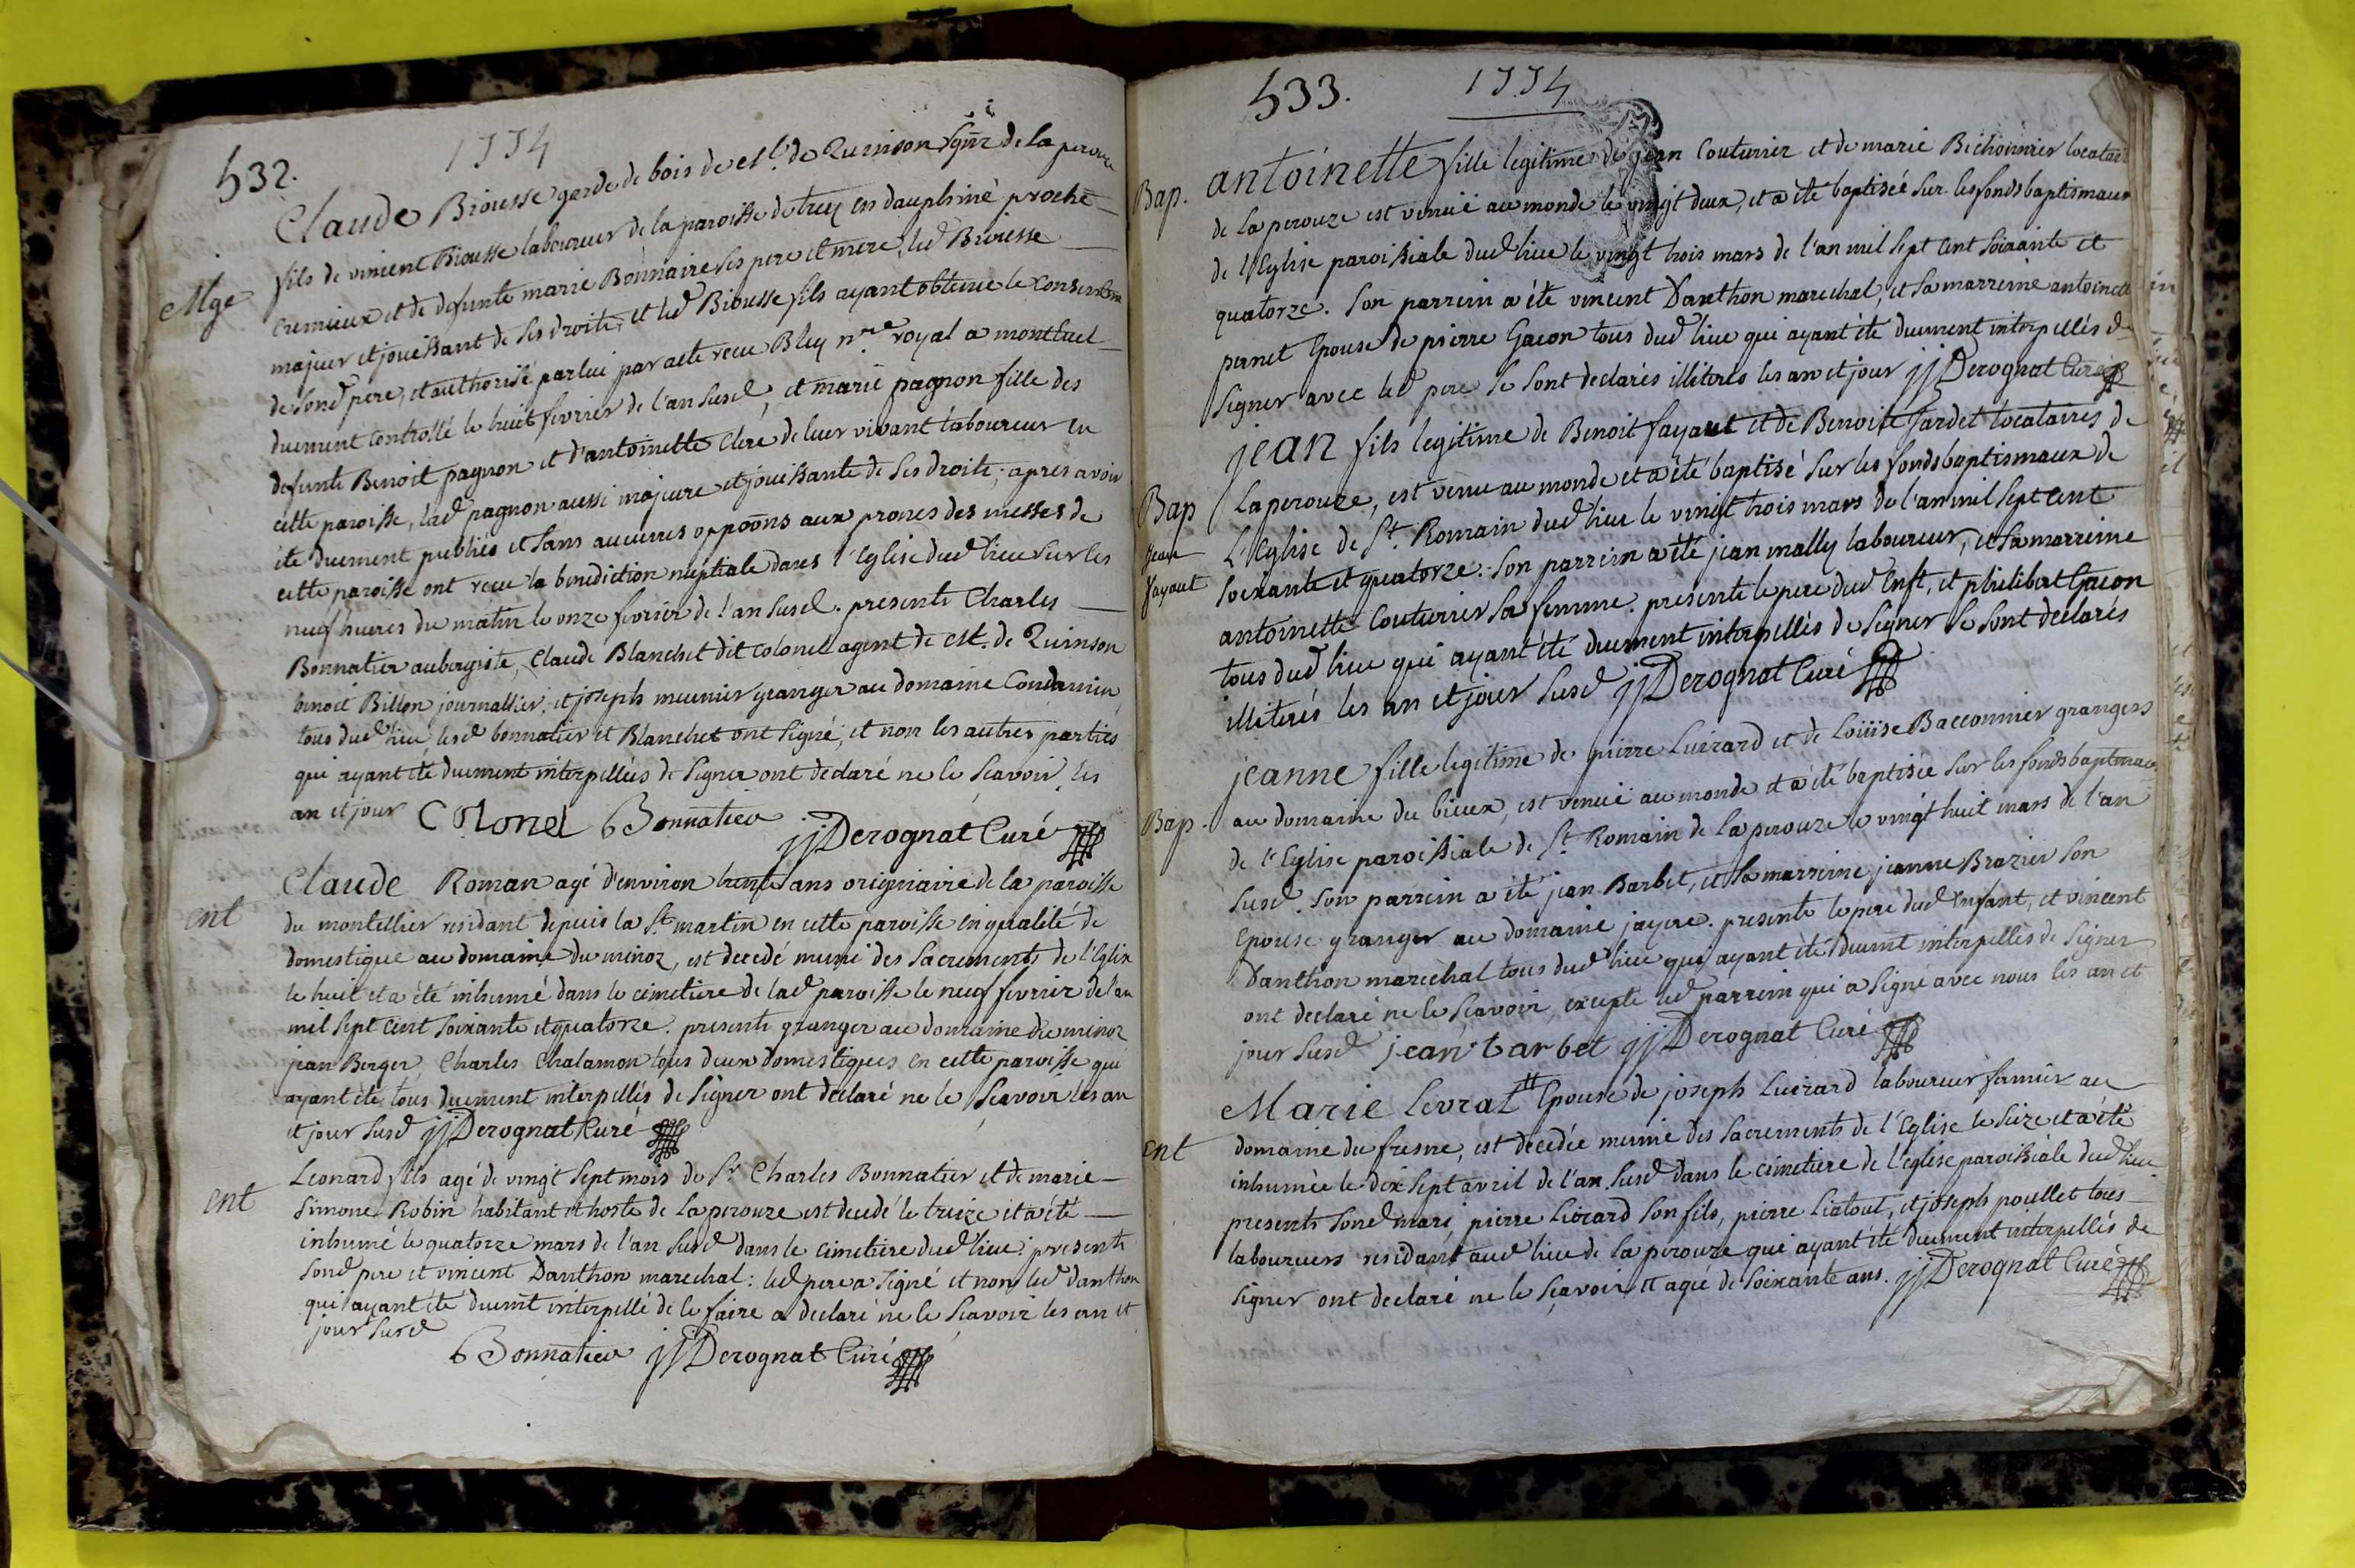 532. 1774
Claude Briousse garde de bois de Mr. de Quinson sgnr de la perouze
Mge
fils de vincent Briousse laboureur de la paroisse de trey en dauphiné proche
cremieux et de defunte marie Bonnaire ses pere et mere, led Briousse
majeur et jouissant de ses droits, et led Briousse fils ayant obtenu le consentem
de sond pere, et authorisé par lui par acte recu Bluy nre royal a montluel
duement controllé le huit fevrier de l'an susd, et marie pagnon fille des
defunts Benoit pagnon et d'antoinette Clere de leur vivant laboureur en
cette paroisse, lad pagnon aussi majeure et jouissante de ses droits; apres avoir
été duement publiés et sans aucunes oppoons aux prones des messes de
cette paroisse ont recu la benediction nuptiale dans l'Eglise dud lieu sur les
neuf heures du matin le onze fevrier de l'an susd. presents Charles
Bonnatier aubergiste, Claude Blanchet dit colonel agent de Mr. de Quinson
benoit Billon journallier, et joseph meunier granger au domaine Condamin,
tous dud lieu, lesd bonnatier et Blanchet ont signé, et non les autres parties
qui ayant été duement interpellées de signer ont declaré ne le scavoir les
an et jour Colonel Bonnatier
jjDerognat Curé
Claude Roman agé d'environ trente ans originaire de la paroisse
ent
du montellier residant depuis la St. martin en cette paroisse en qualité de
domestique au domaine du minoz, est decedé muni des sacrements de l'Eglise
le huit et a été inhumé dans le cimetiere de lad paroisse le neuf fevrier de l'an
mil sept cent soixante et quatorze. presents granger au domaine du minoz
jean Berger, Charles Chalamon tous deux domestiques en cette paroisse qui
ayant été tous duement interpellés de signer ont declaré ne le scavoir les an
et jour susd jjDerognat Curé
Leonard fils agé de vingt sept mois de Sr. Charles Bonnatier et de marie
ent
Simone Robin habitant et hoste de La perouze est decedé le treize et a été
inhumé le quatorze mars de l'an susd dans le cimetiere dud lieu: presents
sond pere et vincent Danthon marechal: led pere a signé et non led danthon
qui ayant été duemt interpellé de le faire a declaré ne le scavoir les an et
jour susd
Bonnatier jjDerognat Curé
533. 1774
Bap. antoinette fille legitime de jean Couturier et de marie Bichonnier locatair
de La perouze est venuë au monde le vingt deux, et a été baptisée sur les fonds baptismaux
de l'Eglise paroissiale dud lieu le vingt trois mars de l'an mil sept cent soixante et
quatorze. Son parrein a été vincent Danthon marechal, et sa marreine antoinette
pernet Epouse de pierre Gacon tous dud lieu qui ayant été duement interpellés de
signer avec led pere se sont declarés illiterés les an et jour jjDerognat Curé
jean fils legitime de Benoit fayaut et de Benoite Jardet locataires de
Bap Laperouze, est venu au monde et a été baptisé sur les fonds baptismaux de
jean L'Eglise de St. Romain dud lieu le vingt trois mars de l'an mil sept cent
fayaut soixante et quatorze. Son parrein a été jean mally laboureur, et sa marreine
antoinette Couturier sa femme. presents le pere dud Enft, et philibert Gacon
tous dud lieu qui ayant été duement interpellés de signer se sont declarés
illiterés les an et jour susd jjDerognat Curé
jeanne fille legitime de pierre Luirard et de Louise Bacconnier grangers
Bap. au domaine du bieux, est venuë au monde et a été baptisée sur les fonds baptismaux
de l'Eglise paroissiale de St. Romain de La perouze le vingt huit mars de l'an
susd. Son parrein a été jean Barbet, et sa marreine jeanne Brazier son
Epouse granger au domaine jayere. presents le pere dud Enfant, et vincent
Danthon marechal tous dud lieu qui ayant été duemt interpellés de signer
ont declaré ne le scavoir, excepté led parrein qui a signé avec nous les an et
jour susd jean barbet jjDerognat Curé
Marie Levrat Epouse de joseph Luirard laboureur fermier au
ent
domaine du fresne, est decedée munie des sacrements de l'Eglise le seize et a été
inhumée le dix sept avril de l'an susd dans le cimetiere de l'eglise paroissiale dud lieu
presents sond mari, pierre Luirard son fils, pierre Liatout, et joseph poullet tous
laboureurs residant aud lieu de la perouze qui ayant été duement interpellés de
signer ont declaré ne le scavoir # agée de soixante ans. jjDerognat Curé